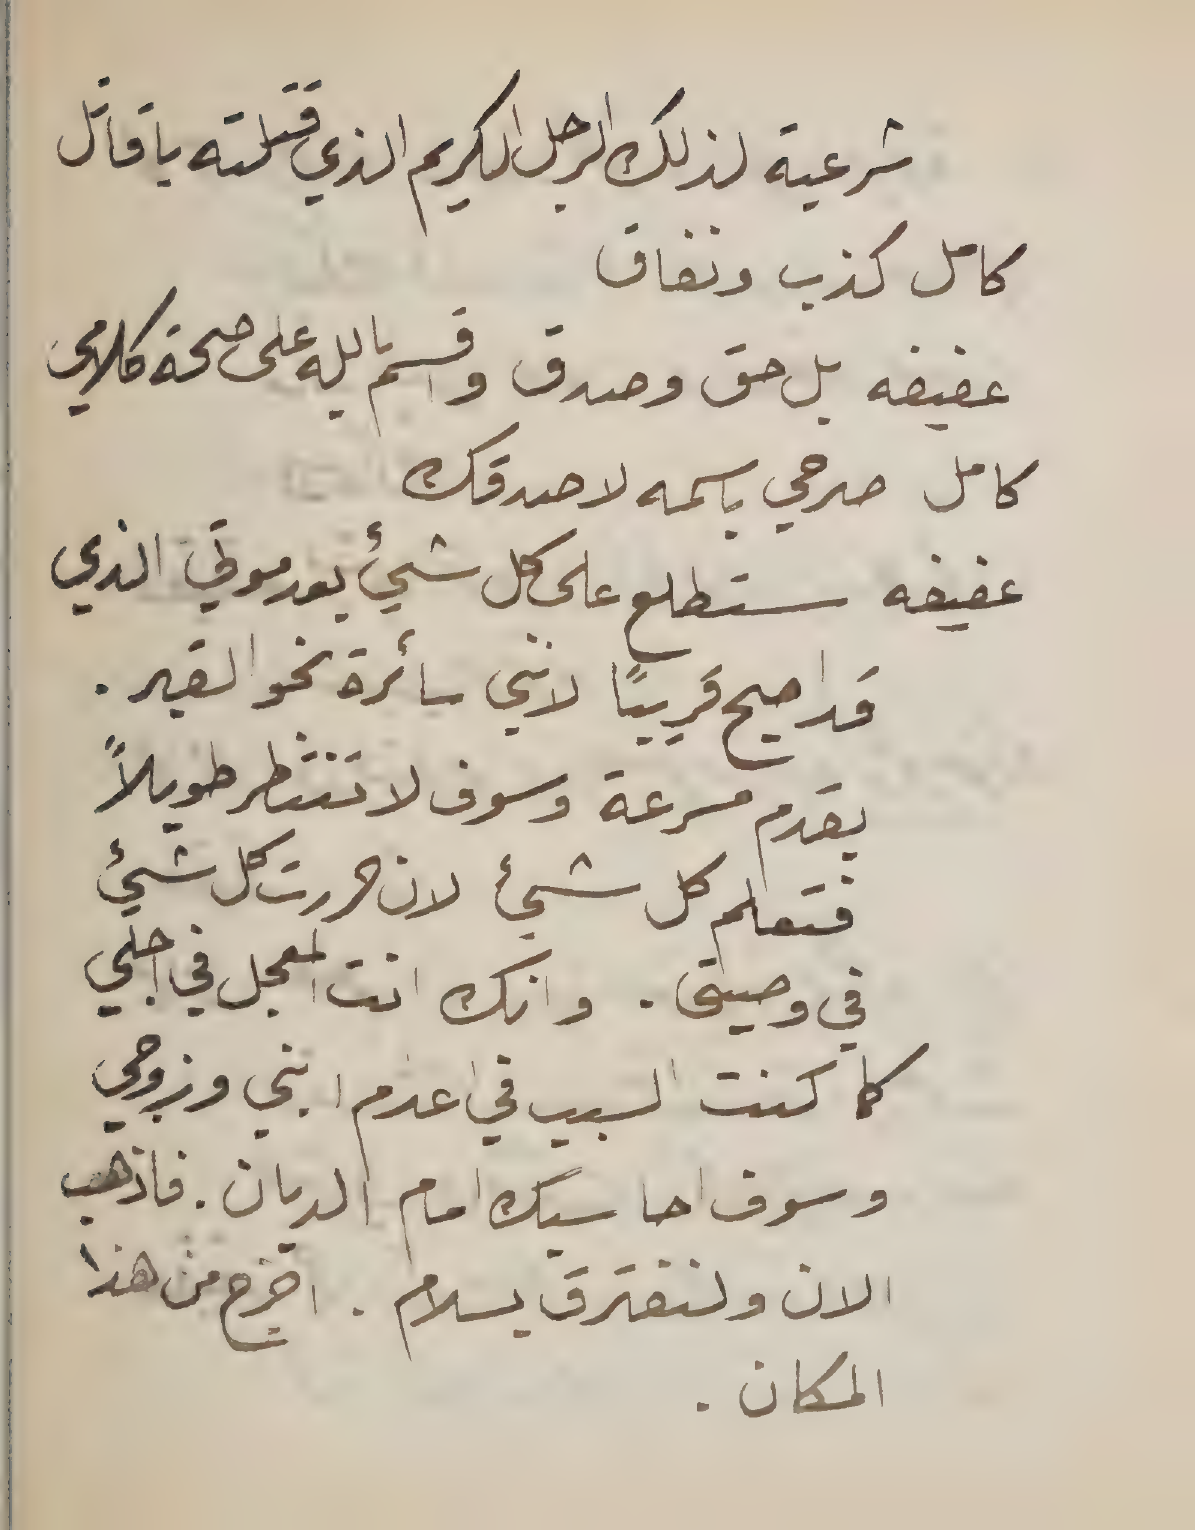 شرعية لذلك الرجل الكريم الذي قتلته يا قاتل
كامل كذب ونفاق
عفيفه بل حق وصدق واقسم بالله على صحة كلامي
كامل صرحي باسمه لاصدقك
عفيفه ستطلع على كل شيئ بعد موتي الذي
قد اصبح قريبًا لانني سائرة نحو القبر .
بقدم مسرعة وسوف لا تنتظر طويلاً
فتعلم كل شيئ لان حررت كل شيئ
في وصيتي . وانك انت المعجل في اجلي
كما كنت السبب في اعدم ابني وزوجي
وسوف احاسبك امام الديان . فاذهب
الان ولنفترق بسلام . اخرج من هذا
المكان .